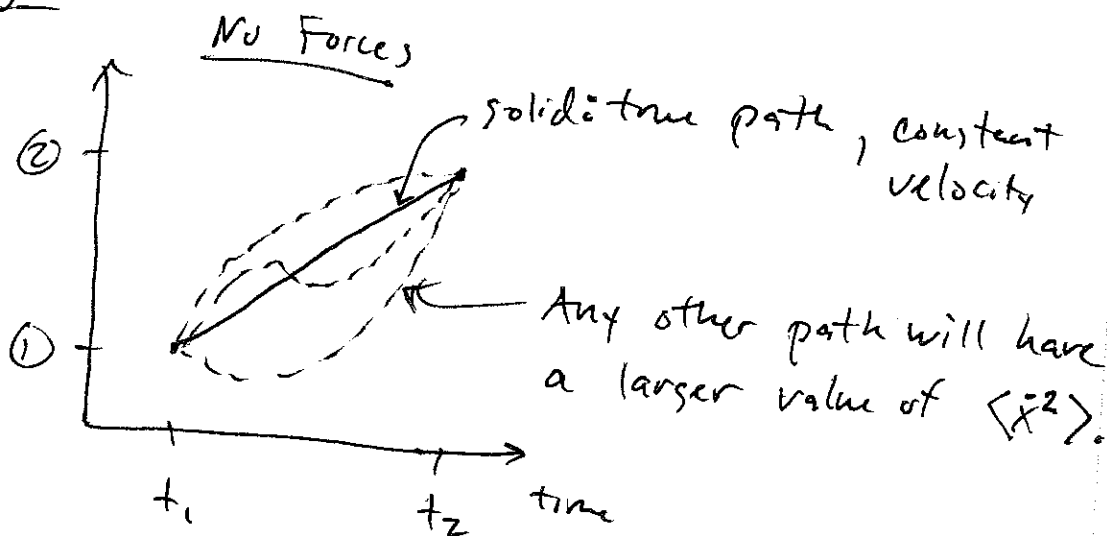 No Forces
solid: true path, constant
velocity
②
①
Any other path will have
a larger value of <ẋ²>.
t₁
t₂
time